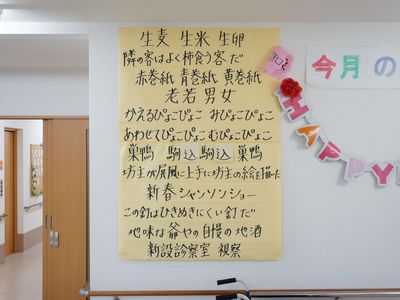 生麦 生米 生卵
隣の客はよく柿食う客だ
赤巻紙 青巻紙 黄巻紙
老若男女
かえるぴょこぴょこ みぴょこぴょこ
あわせてぴょこぴょこ むぴょこぴょこ
巣鴨 駒込 駒込 巣鴨
坊主が屏風に上手に坊主の絵を描いた
新春シャンソンショー
この釘はひきぬきにくい釘だ
地味な爺やの自慢の地酒
新設診察室 視察
今月の
HAPPY